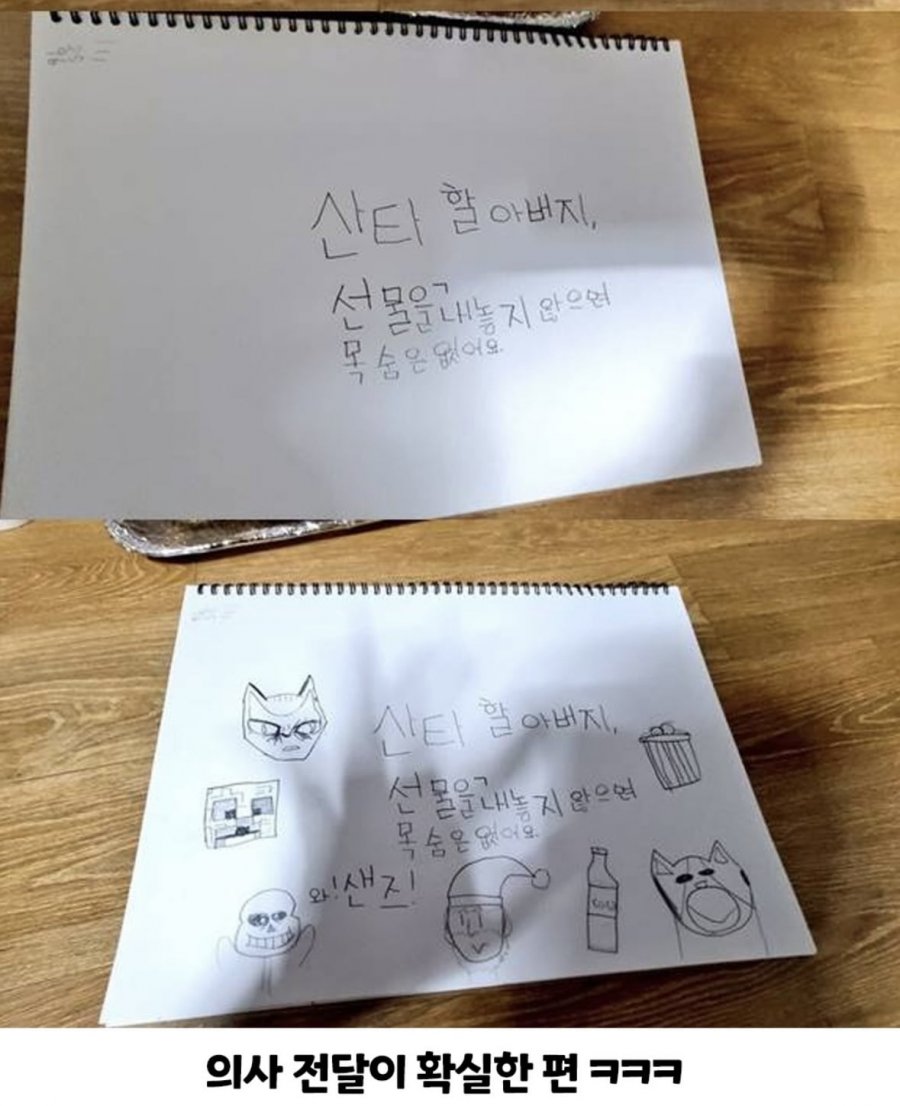 산타 할아버지,
선물을 내놓지 않으면
목숨은 없어요.
산타 할아버지,
선물을 내놓지 않으면
목숨은 없어요.
와! 샌즈!
의사 전달이 확실한 편 ㅋㅋㅋ